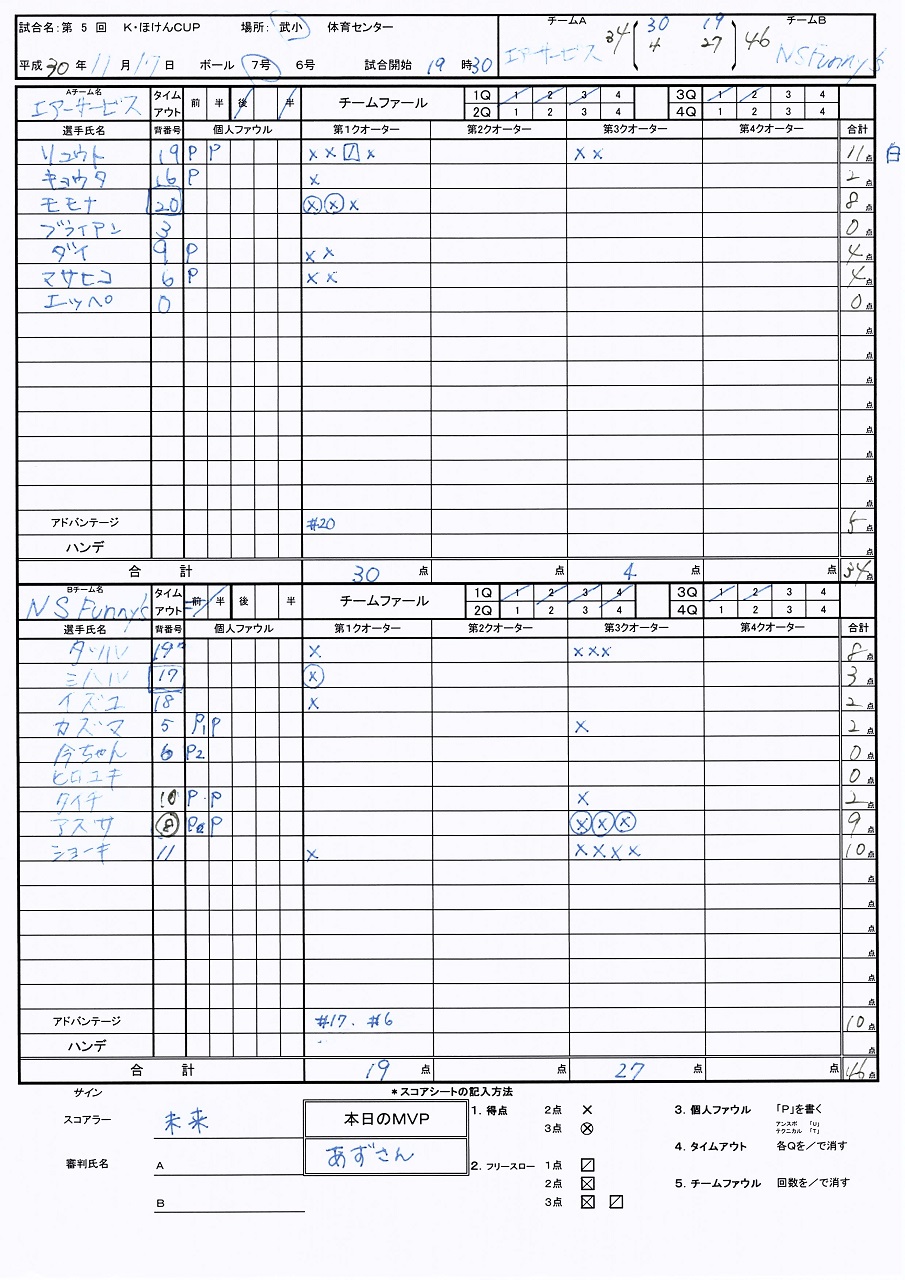 試合名:第 5 回 K・ほけんCUP 場所: 武小 体育センター
平成 30 年 11 月 17 日 ボール 7号 6号 試合開始 19 時 30
チームA 34 ( 30 19 ) 46 チームB
エアーサービス 4 27 NSFunny's
Aチーム名 エアーサービス タイムアウト 前 半 後 半 チームファール 1Q 1 2 3 4 3Q 1 2 3 4
2Q 1 2 3 4 4Q 1 2 3 4
選手氏名 背番号 個人ファウル 第1クオーター 第2クオーター 第3クオーター 第4クオーター 合計
リュウト 19 P P × × ☐ × × × 11点 白
キョウタ 16 P × 2点
モモナ 20 ⊗ ⊗ × 8点
ブライアン 3 0点
ダイ 9 P × × 4点
マサヒコ 6 P × × 4点
エッペ 0 0点
点
点
点
点
点
点
点
点
アドバンテージ #20 5点
ハンデ 点
合 計 30 点 点 4 点 点 34点
Bチーム名 NS Funny's タイムアウト 前 半 後 半 チームファール 1Q 1 2 3 4 3Q 1 2 3 4
2Q 1 2 3 4 4Q 1 2 3 4
選手氏名 背番号 個人ファウル 第1クオーター 第2クオーター 第3クオーター 第4クオーター 合計
19 × ××× 8点
ミハル 17 ⊗ 3点
イズミ 18 × 2点
カズマ 5 P1 P × 2点
今ちゃん 6 P2 0点
ヒロユキ 0点
タイチ 10 P P × 2点
アズサ 8 P2 P ⊗⊗⊗ 9点
ショーキ 11 × ×××× 10点
点
点
点
点
点
点
アドバンテージ #17. #6 10点
ハンデ 点
合 計 19 点 点 27 点 点 46点
サイン
スコアラー 未来
審判氏名 A
B
本日のMVP
あずさん
*スコアシートの記入方法
1. 得点 2点 ×
3点 ⊗
2. フリースロー 1点 ⧄
2点 ☒
3点 ☒ ⧄
3. 個人ファウル 「P」を書く
アンスポ 「U」
テクニカル 「T」
4. タイムアウト 各Qを/で消す
5. チームファウル 回数を/で消す